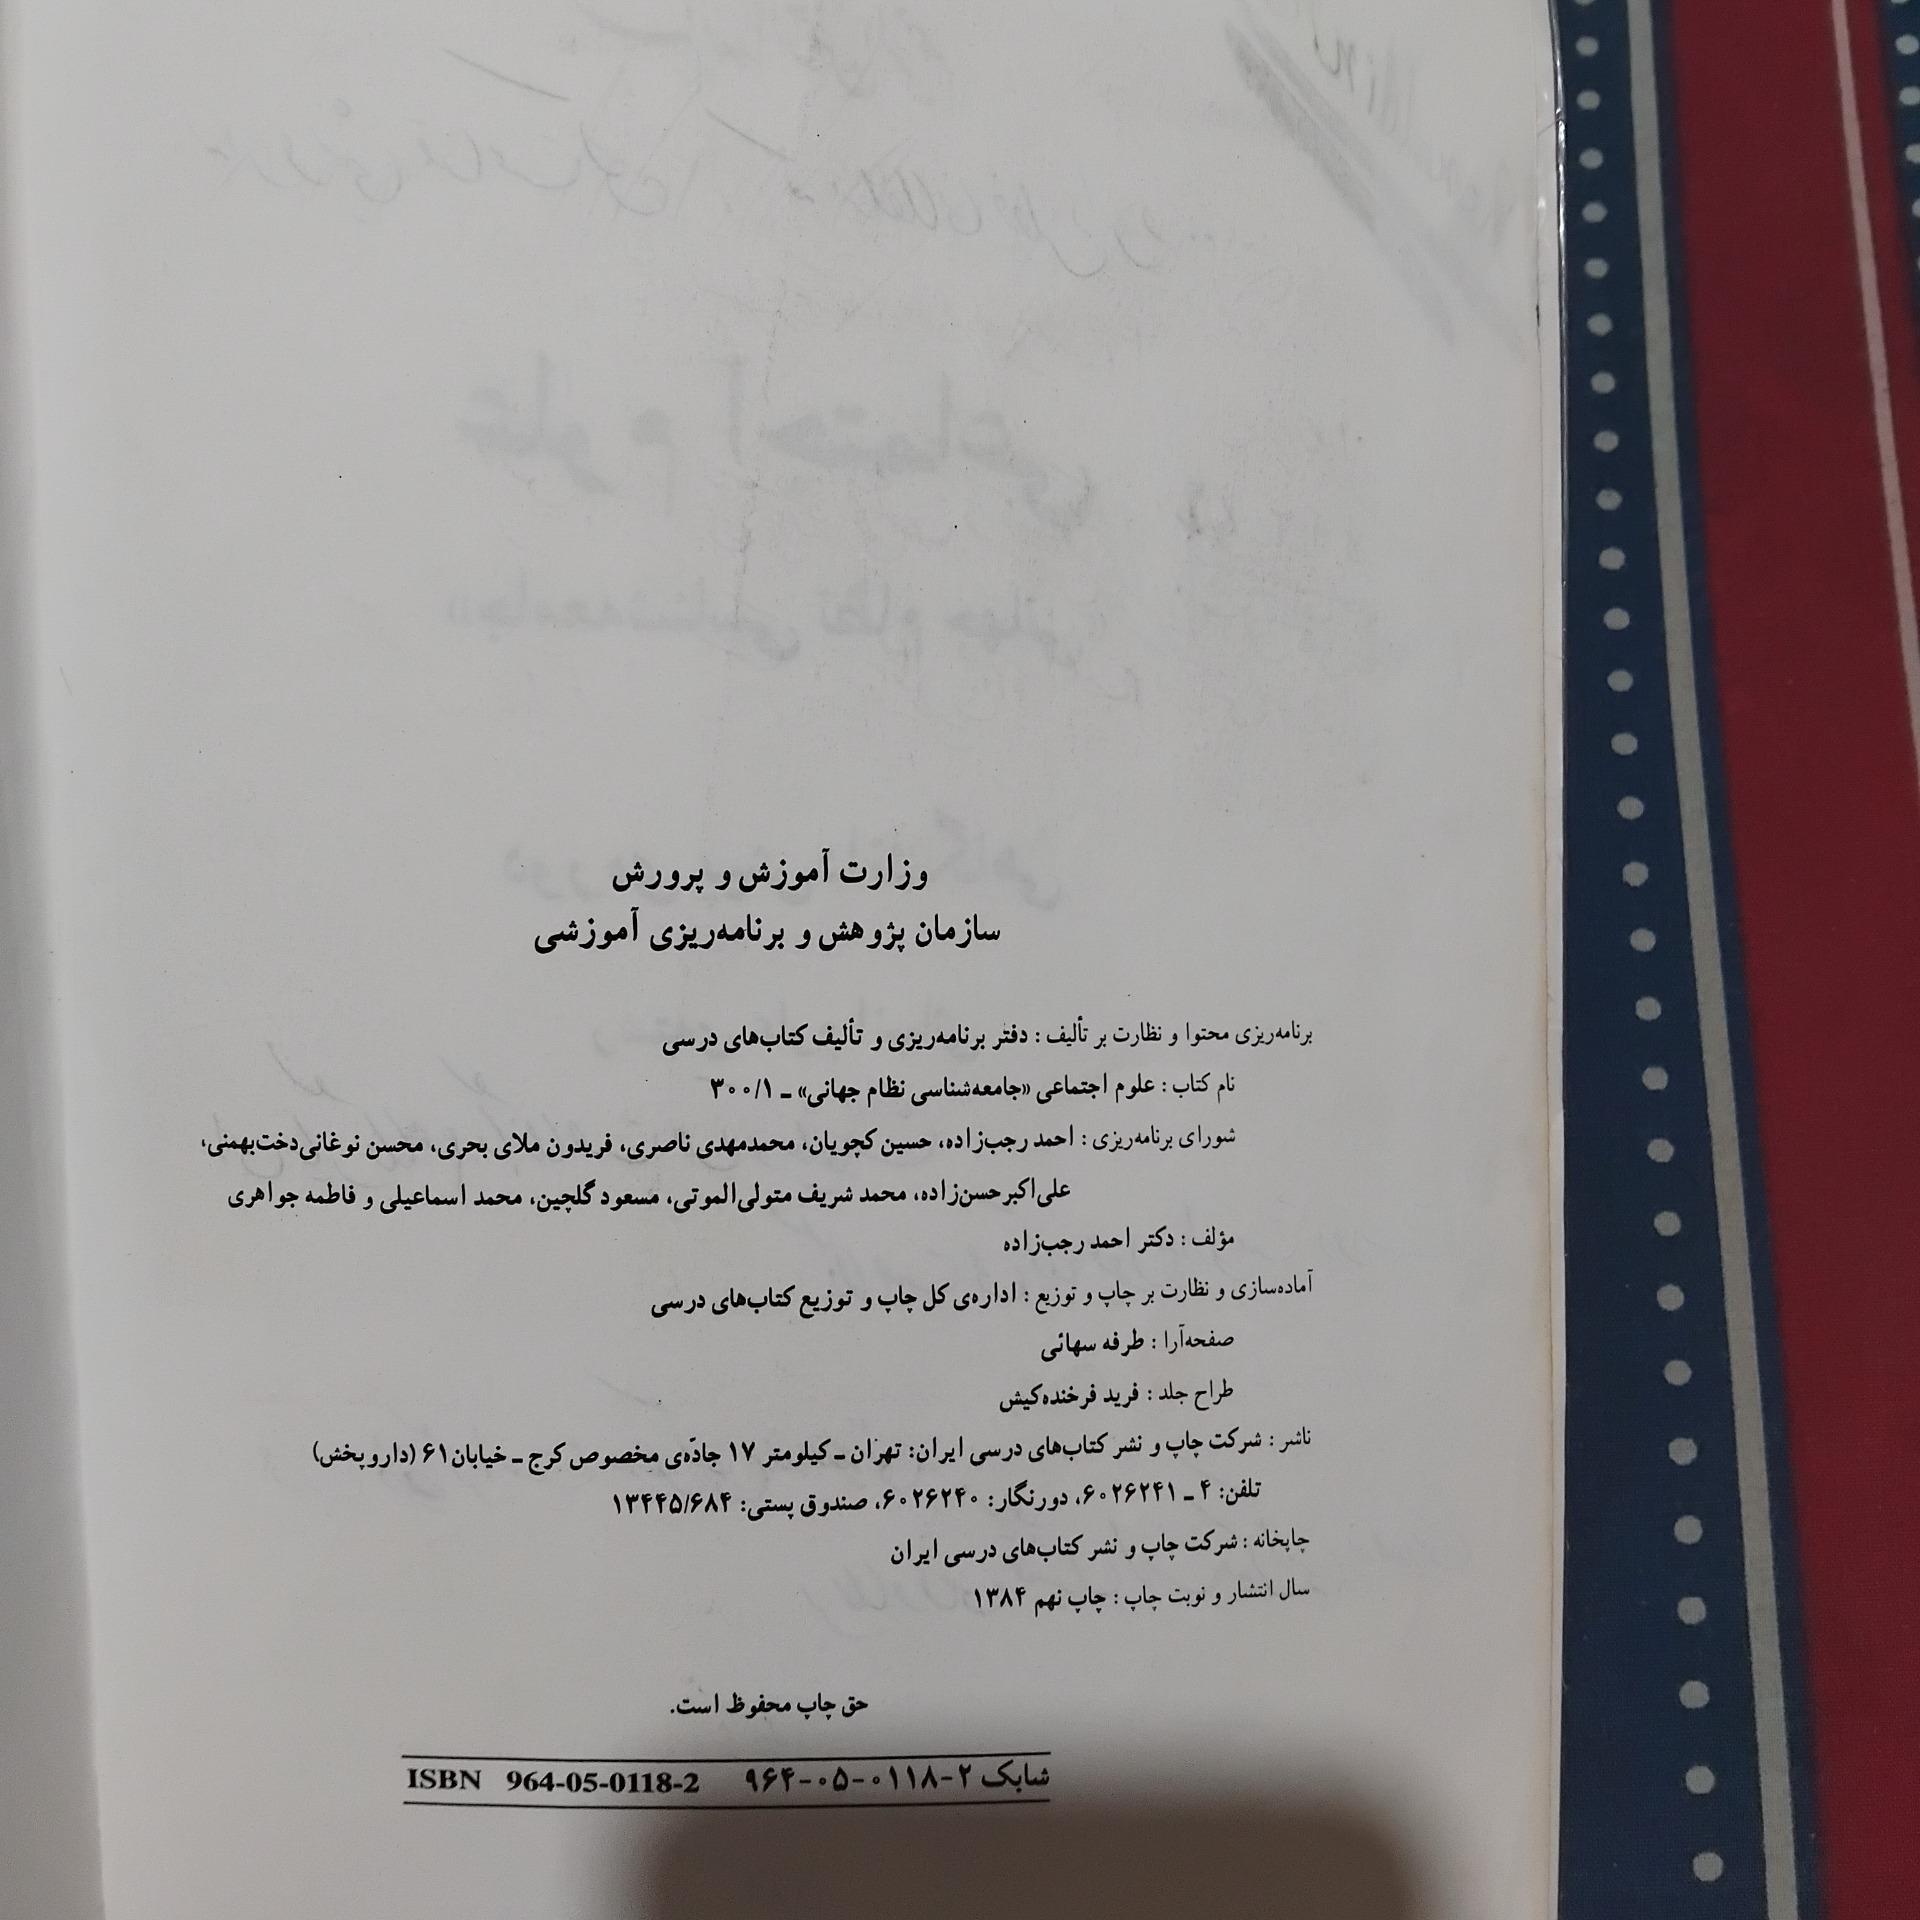 وزارت آموزش و پرورش
سازمان پژوهش و برنامه‌ریزی آموزشی
برنامه‌ریزی محتوا و نظارت بر تألیف : دفتر برنامه‌ریزی و تألیف کتاب‌های درسی
نام کتاب : علوم اجتماعی «جامعه‌شناسی نظام جهانی» ـ ۳۰۰/۱
شورای برنامه‌ریزی : احمد رجب‌زاده، حسین کچویان، محمدمهدی ناصری، فریدون ملای بحری، محسن نوغانی‌دخت‌بهمنی،
علی‌اکبر حسن‌زاده، محمد شریف متولی‌الموتی، مسعود گلچین، محمد اسماعیلی و فاطمه جواهری
مؤلف : دکتر احمد رجب‌زاده
آماده‌سازی و نظارت بر چاپ و توزیع : اداره‌ی کل چاپ و توزیع کتاب‌های درسی
صفحه‌آرا : طرفه سهائی
طراح جلد : فرید فرخنده‌کیش
ناشر : شرکت چاپ و نشر کتاب‌های درسی ایران: تهران ـ کیلومتر ۱۷ جادّه‌ی مخصوص کرج ـ خیابان ۶۱ (داروپخش)
تلفن: ۴ ـ ۶۰۲۶۲۴۱، دورنگار: ۶۰۲۶۲۴۰، صندوق پستی: ۱۳۴۴۵/۶۸۴
چاپخانه : شرکت چاپ و نشر کتاب‌های درسی ایران
سال انتشار و نوبت چاپ : چاپ نهم ۱۳۸۴
حق چاپ محفوظ است.
شابک ۲-۰۱۱۸-۰۵-۹۶۴ ISBN 964-05-0118-2